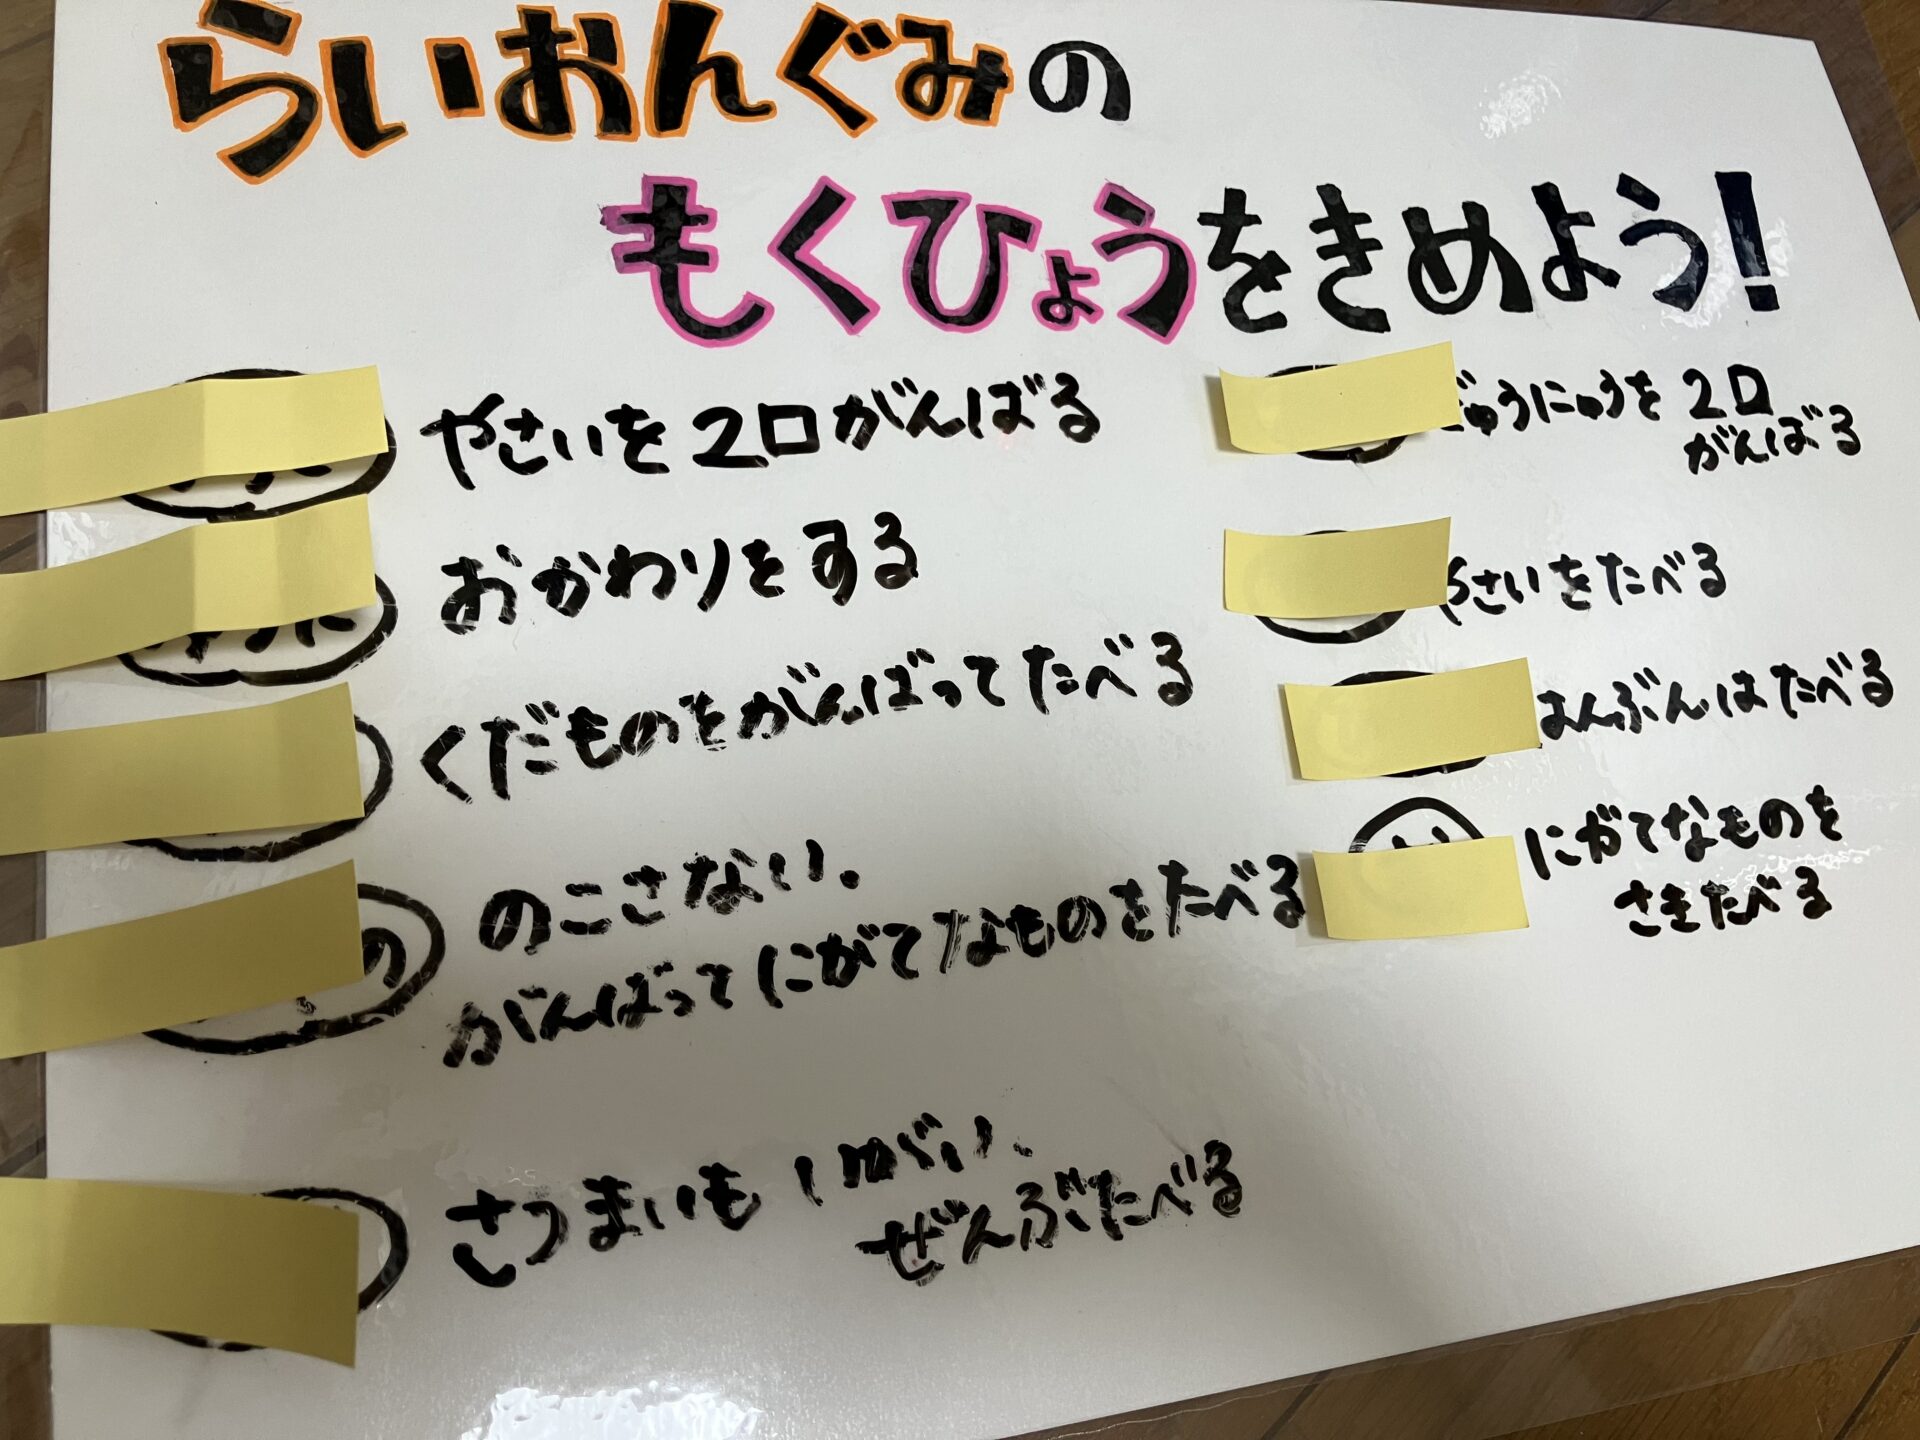 らいおんぐみの
もくひょうをきめよう!
やさいを2口がんばる
おかわりをする
くだものをがんばってたべる
の
のこさない.
がんばってにがてなものをたべる
さつまいもいがい、
ぜんぶたべる
ぎゅうにゅうを2口
がんばる
やさいをたべる
はんぶんはたべる
にがてなものを
さきたべる